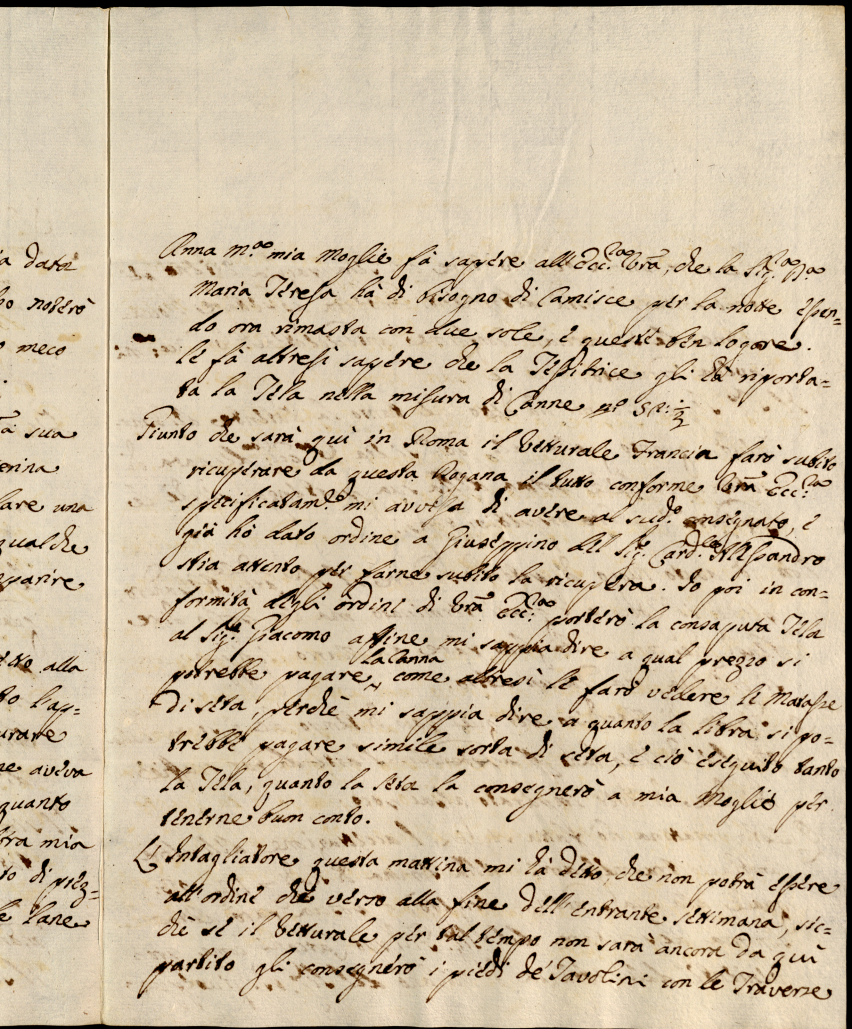 a data
bo noterò
o meco
a sua
erina
lare una
qualche
parire
etto alla
to l'ap=
urare
ne aveva
quanto
tra mia
to di piez=
le lane
Anna M.ª mia Moglie fà sapere all'Ecc.ª Vrã, che la Sig.ª D.ª
Maria Teresa hà di bisogno di Camisce per la notte essen=
do ora rimasta con due sole, e queste ben logore.
le fà altresì sapere che la Tessitrice gli hà riporta=
ta la Tela nella misura di Canne nº 52:½
Giunto che sarà quì in Roma il Vetturale Francia farò subito
ricuperare da questa Dogana il tutto conforme Vrã Ecc.ª
specificatam.e mi avvisa di avere al sud.º consegnato, e
già hò dato ordine a Giuseppino del Sig. Card.le Alessandro
stia attento per farne subito la ricupera. Io poi in con=
formità degli ordini di Vrã Ecc.ª porterò la consaputa Tela
al Sig.r Giacomo affine mi sappia dire a qual prezzo si
potrebbe pagare la Canna, come altresì le farò vedere le Matasse
di seta, perchè mi sappia dire a quanto la libra si po=
trebbe pagare simile sorta di seta, e ciò eseguito tanto
la Tela, quanto la seta la consegnerò a mia Moglie per
tenerne buon conto.
L'Intagliatore questa mattina mi hà detto, che non potrà essere
all'ordine che verso alla fine dell'entrante settimana, sic=
chè se il Vetturale per tal tempo non sarà ancora da quì
partito gli consegnerò i piedi de' Tavolini con le Traverse